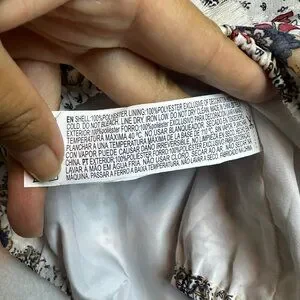 EN SHELL:100%POLYESTER LINING:100%POLYESTER EXCLUSIVE OF DECORATION
COLD DO NOT BLEACH. LINE DRY. IRON LOW DO NOT DRY CLEAN
EXTERIOR: 100%POLIESTER FORRO:100%POLIESTER EXCLUSIVO PARA DECORACIÓN
TEMPERATURA MÁXIMA 40 °C. NO USAR BLANQUEADOR.
PLANCHAR A UNA TEMPERATURA MÁXIMA DE LA BASE DE 110 °C, SIN VAPOR.
CON VAPOR PUEDE CAUSAR DAÑO IRREVERSIBLE. NO LAVAR EN SECO. MADE IN
CHINA. PT EXTERIOR:100%POLIÉSTER FORRO:100%POLIÉSTER
LAVAR À MÃO EM ÁGUA FRIA. NÃO USAR CLORO. NÃO LAVAR A SECO.
MÁQUINA. PASSAR A FERRO A BAIXA TEMPERATURA. NÃO LAVAR A SECO.